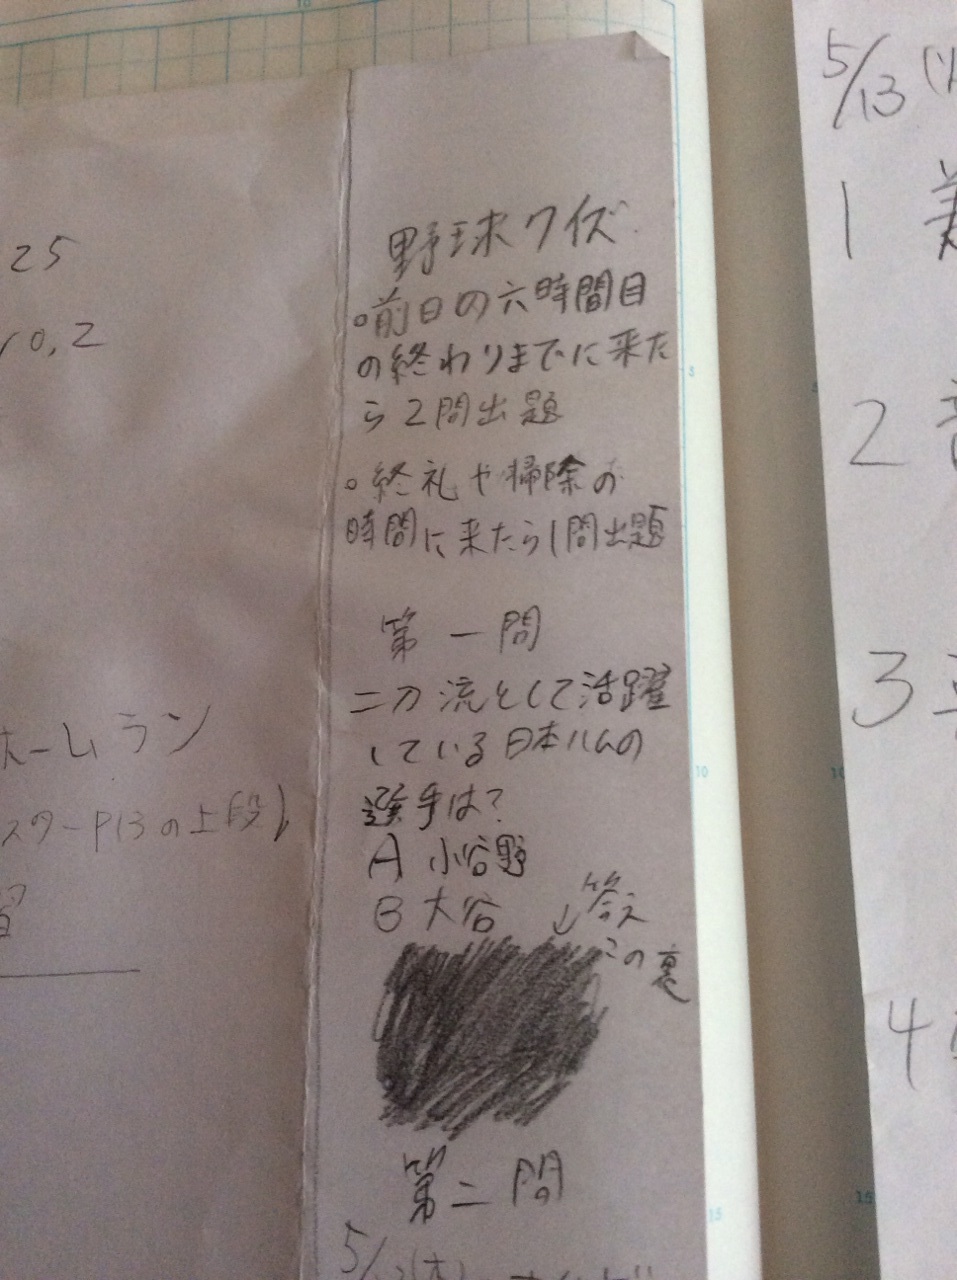 25
0,2
ホームラン
スターP13の上段)
野球クイズ
○前日の六時間目
の終わりまでに来た
ら2問出題
○終礼や掃除の
時間に来たら1問出題
第一問
二刀流として活躍
している日本ハムの
選手は?
A 小谷野
B 大谷
↓答え
この裏
第二問
5/
5/13(
1
2
3
4
5
10
15
10
10
15